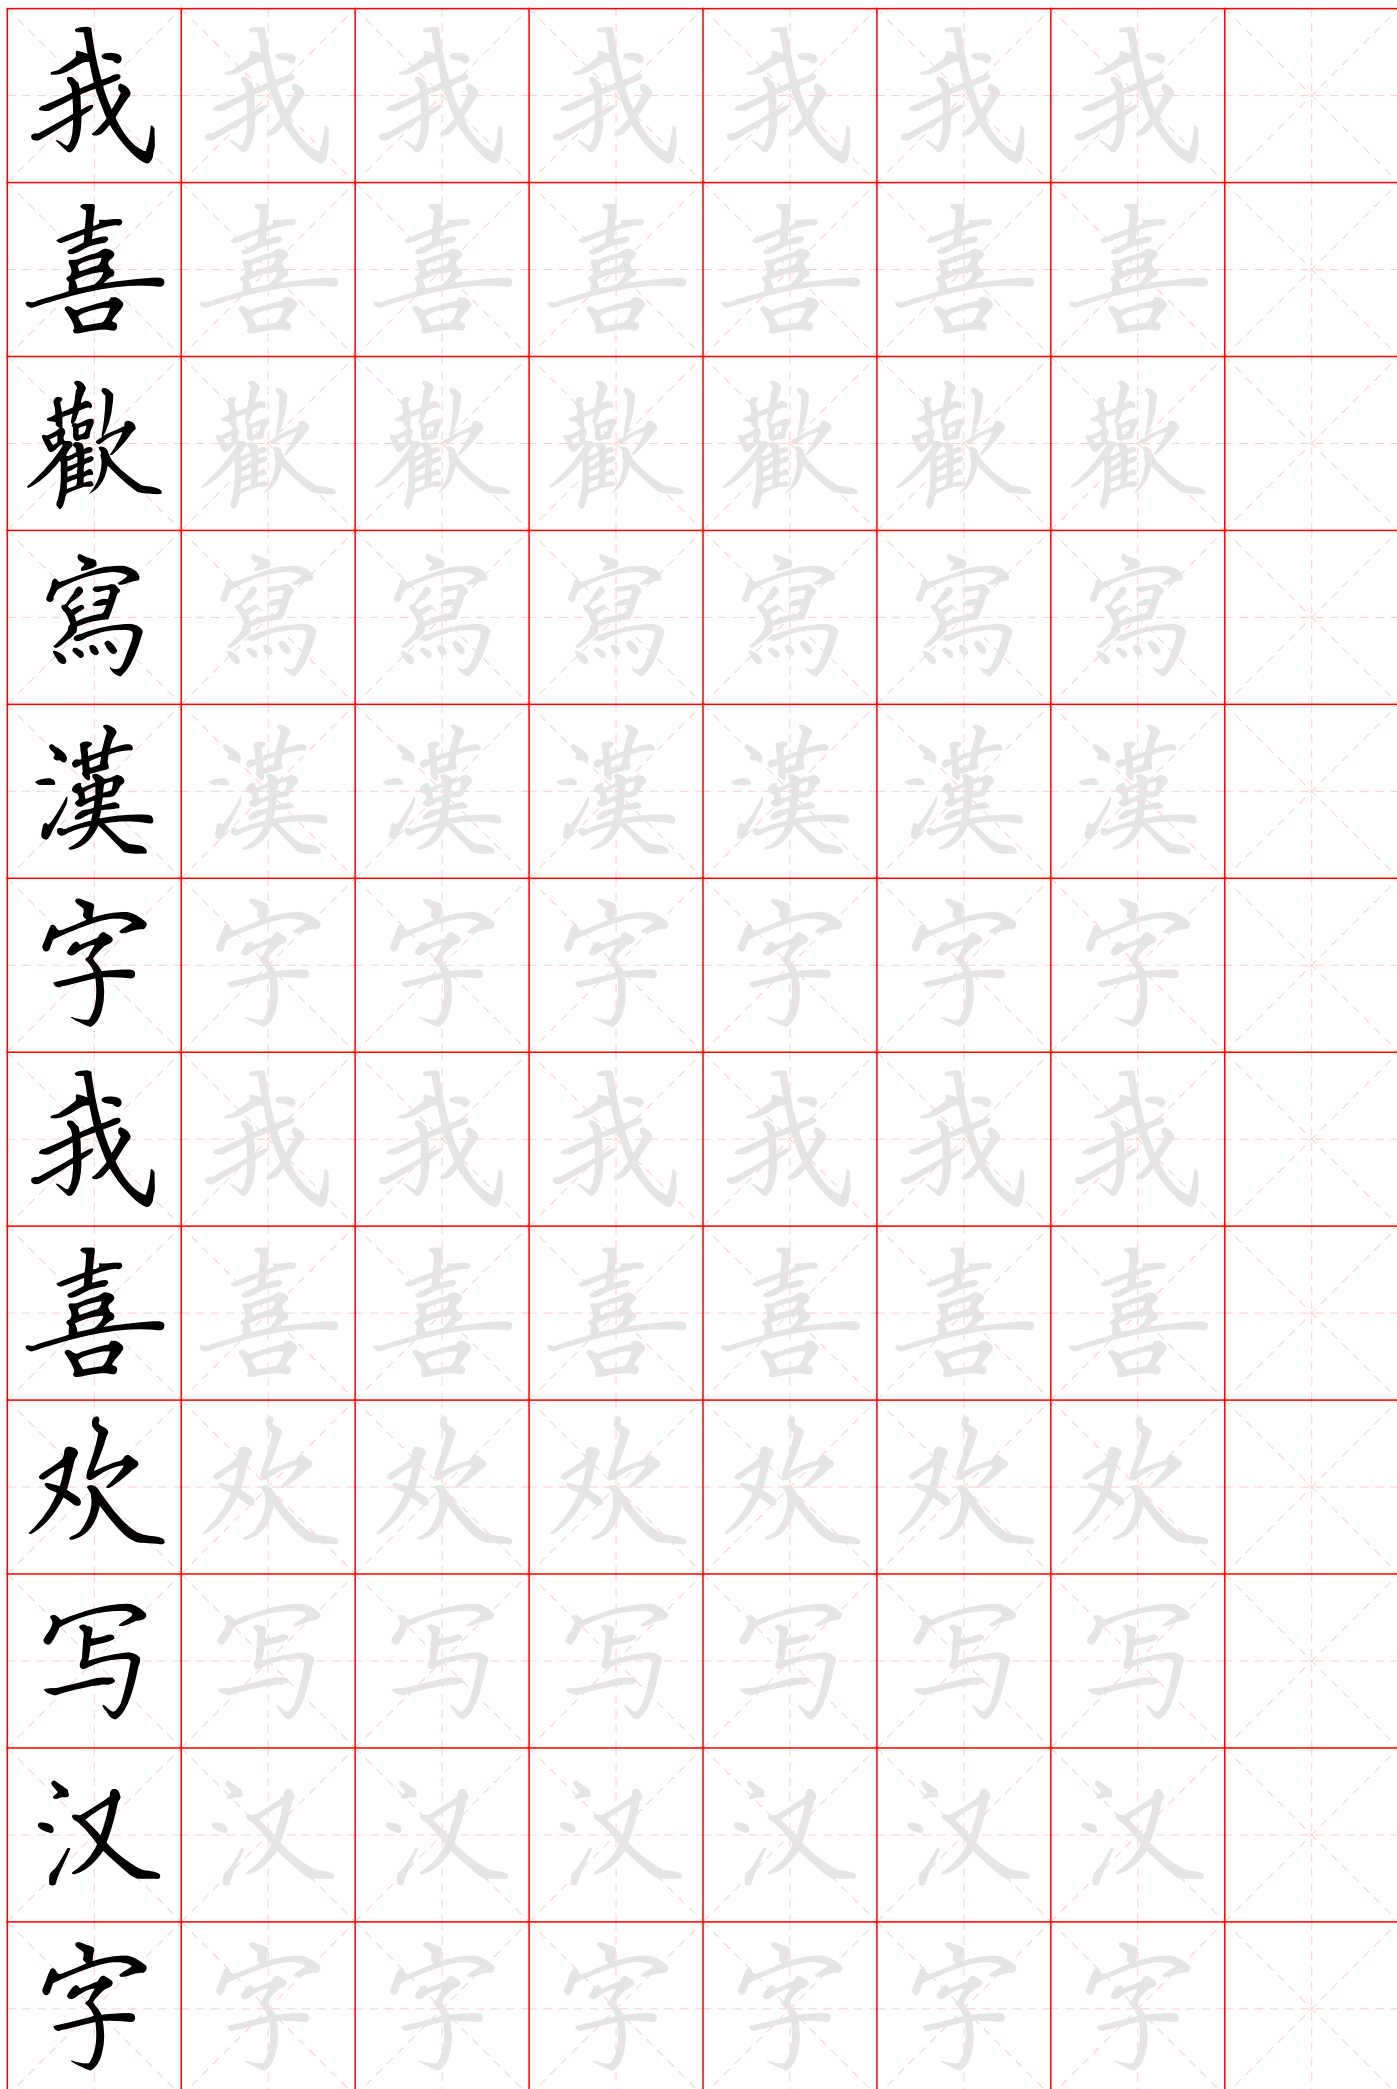 我我我我我我我
喜喜喜喜喜喜喜
歡歡歡歡歡歡歡
寫寫寫寫寫寫寫
漢漢漢漢漢漢漢
字字字字字字字
我我我我我我我
喜喜喜喜喜喜喜
欢欢欢欢欢欢欢
写写写写写写写
汉汉汉汉汉汉汉
字字字字字字字